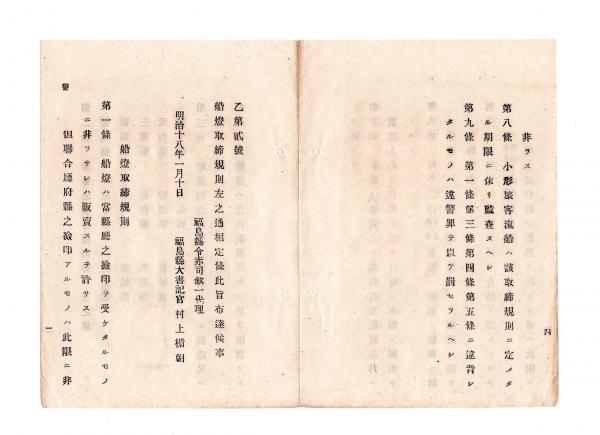 非ラス
第八條 小形旅客滊船ハ該取締規則ニ定メタ
ル期限ニ依リ監査スヘシ
第九條 第一條第三條第四條第五條ニ違背シ
タルモノハ違警罪ヲ以テ罰セラルヘシ
四
乙第貳號
船燈取締規則左之通相定條此旨布達候事
福島縣令赤司欽一代理
明治十八年一月十日 福島縣大書記官 村上楯朝
船燈取締規則
第一條 船燈ハ當縣廳之撿印ヲ受ケタルモノ
ニ非ラサレハ販賣スルヲ許サス
但聯合廳府縣之撿印アルモノハ此限ニ非
警
一